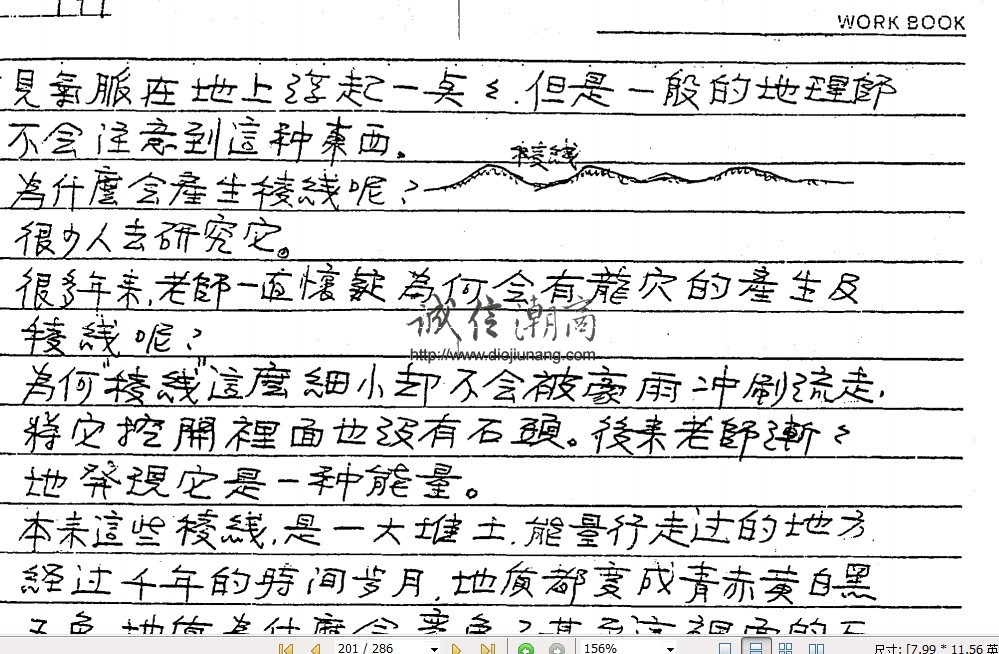 WORK BOOK
見氣脈在地上浮起一点々.但是一般的地理師
不会注意到這种東西。
稜线
為什麼会產生稜线呢?
很少人去研究它。
很多年来,老師一直懷疑為何会有龍穴的產生及
誠信潮商
稜线呢?
http://www.diojiunang.com
為何"稜线"這麼細小却不会被豪雨冲刷流走,
将它挖開裡面也没有石頭。後来老師漸々
地発現它是一种能量。
本来這些稜线,是一大堆土,能量行走过的地方
経过千年的時间岁月,地质都変成青赤黄白黑
五色,地质為什麼会変色?甚至這裡面的石
201 / 286
156%
尺寸: [7.99 * 11.56 英